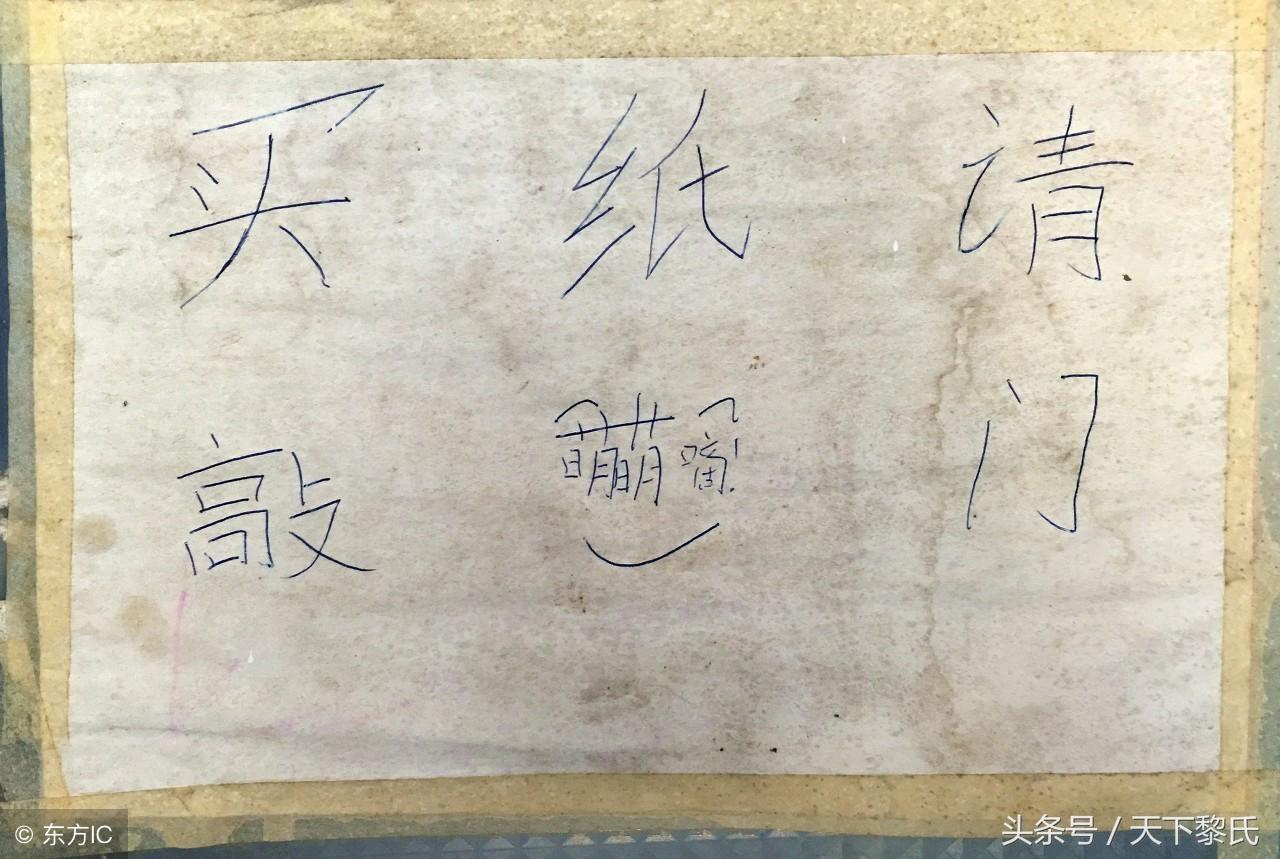 买纸请
敲萌萌嘀!门
© 东方IC
头条号 / 天下黎氏